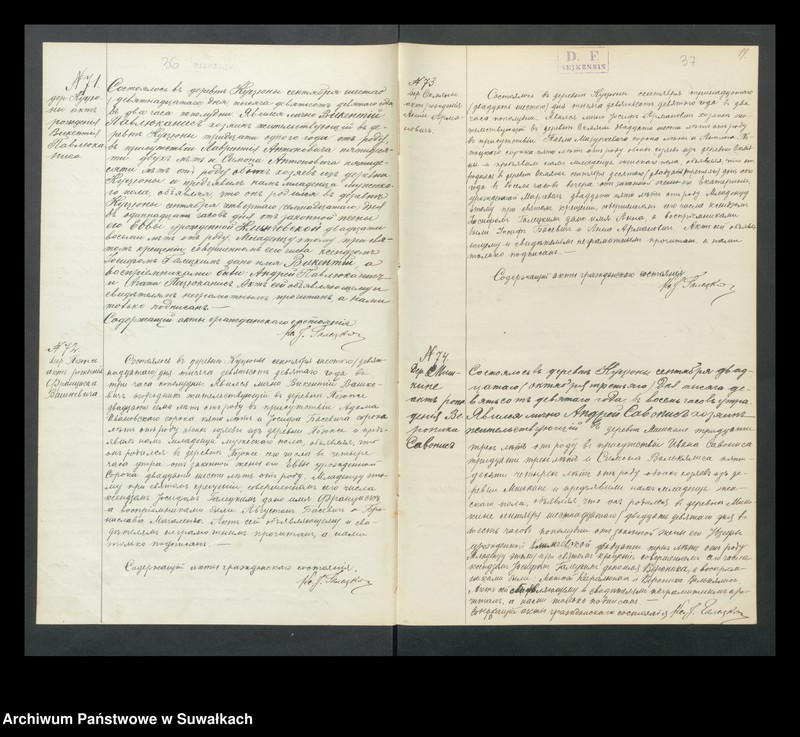 36
37
D. F.
SEJNENSIS
№71.
дер. Кудро-
ны актъ
рожденія
Викентія
Павлюка-
ниса
Состоялось въ деревнѣ сентября шестаго
/девятнадцатаго дня тысяча девятьсотъ девятаго года
въ два часа пополудни. Явился лично Викентій
Павлюканисъ хозяинъ жительствующій въ де-
ревнѣ тридцати одного года отъ роду,
въ присутствіи Лаврентія Антоновича пятидеся-
ти двухъ лѣтъ и Антоновича пятиде-
сяти лѣтъ отъ роду обоихъ хозяевъ изъ деревни
и предъявилъ намъ младенца мужска-
го пола, объявляя, что онъ родился въ деревнѣ
сентября четвертаго /семнадцатаго/ дня
въ одинадцать часовъ дня отъ законной жены
его Евы урожденной двадцати
восьми лѣтъ отъ роду. Младенцу этому при свя-
томъ крещеніи, совершенномъ сего числа ксендзомъ
Іосифомъ Галецкимъ дано имя Викентій, а
воспріемниками были: Андрей Павлюканисъ
и Агата Актъ сей объявляющему и
свидѣтелямъ неграмотнымъ прочитанъ, а нами
только подписанъ.—
Содержащій акты гражданскаго состоянія
Кс. J. Галецкій
№72.
дер.
актъ рожденія
Франциска
Вашкевича
Состоялось въ деревнѣ сентября шестаго /девят-
надцатаго дня тысяча девятьсотъ девятаго года въ
три часа пополудни. Явился лично Викентій Вашке-
вичъ жительствующій въ деревнѣ
двадцати семи лѣтъ отъ роду въ присутствіи Адама
сорока лѣтъ и Іосифа Басевича сорока
лѣтъ отъ роду обоихъ изъ деревни и предъ-
явилъ намъ младенца мужескаго пола, объявляя, что
онъ родился въ деревнѣ сего числа въ четыре
часа утра отъ законной жены его Евы урожденной
двадцати шести лѣтъ отъ роду. Младенцу это-
му при святомъ крещеніи, совершенномъ сего числа
ксендзомъ Іосифомъ Галецкимъ дано имя Францискъ,
а воспріемниками были: Августинъ Басевичъ и Бро-
нислава Актъ сей объявляющему и сви-
дѣтелямъ неграмотнымъ прочитанъ, а нами
только подписанъ.—
Содержащій акты гражданскаго состоянія.
Кс. J. Галецкій
№73.
дер.
актъ рожденія
Анны
Состоялось въ деревнѣ сентября тринадцатаго
/двадцать шестаго/ дня тысяча девятьсотъ девятаго года въ два
часа пополудни. Явился лично Іосифъ хозяинъ жи-
тельствующій въ деревнѣ двадцати шести лѣтъ отъ роду
въ присутствіи
сорока лѣтъ отъ роду обоихъ изъ деревни
и предъявилъ намъ младенца женскаго пола, объявляя, что онъ
родился въ деревнѣ сентября десятаго /двадцать третьяго/ дня сего
года въ восемь часовъ вечера отъ законной жены его
урожденной двадцати лѣтъ отъ роду. Младенцу
этому при святомъ крещеніи, совершенномъ сего числа ксендзомъ
Іосифомъ Галецкимъ дано имя Анна, а воспріемниками
были: Іосифъ Басевичъ и Анна Актъ сей объявля-
ющему и свидѣтелямъ неграмотнымъ прочитанъ, а нами
только подписанъ.—
Содержащій акты гражданскаго состоянія
Кс. J. Галецкій
№74.
дер. Миш-
кине
актъ рож-
денія Ве-
роники
Савонисъ
Состоялось въ деревнѣ сентября двад-
цатаго /октября третьяго/ дня тысяча де-
вятьсотъ девятаго года, въ восемь часовъ утра.
Явился лично Андрей Савонисъ хозяинъ
жительствующій въ деревнѣ Мишкине тридцати
трехъ лѣтъ отъ роду въ присутствіи Ивана Савониса
тридцати трехъ лѣтъ и пяти-
десяти четырехъ лѣтъ отъ роду обоихъ хозяевъ изъ де-
ревни Мишкине и предъявилъ намъ младенца жен-
скаго пола, объявляя что онъ родился въ деревнѣ Миш-
кине сентября шестнадцатаго /двадцать девятаго дня въ
шесть часовъ пополудни отъ законной жены его
урожденной двадцати трехъ лѣтъ отъ роду.
Младенцу этому при святомъ крещеніи совершенномъ сего числа
ксендзомъ Іосифомъ Галецкимъ дано имя Вероника, а воспріем-
никами были: и Вероника
Актъ сей объявляющему и свидѣтелямъ неграмотнымъ про-
читанъ, а нами только подписанъ.—
Содержащій акты гражданскаго состоянія Кс. J. Галецкій
Archiwum Państwowe w Suwałkach